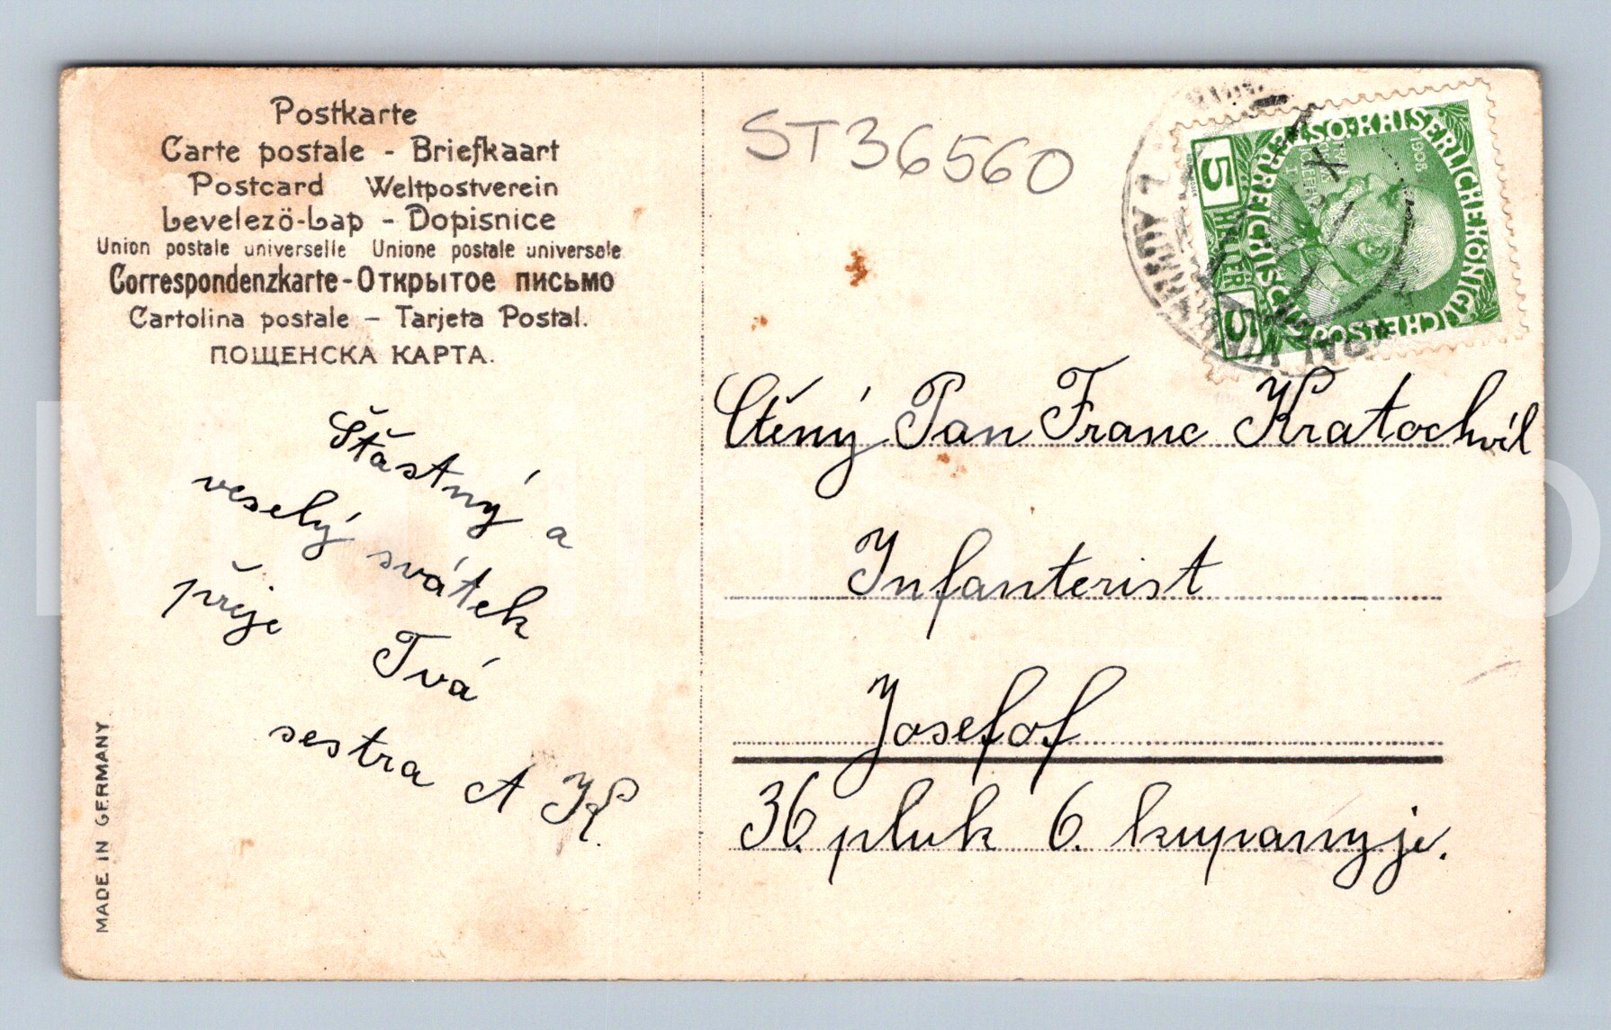 Postkarte
Carte postale - Briefkaart
Postcard Weltpostverein
Levelezö-Lap - Dopisnice
Union postale universelle Unione postale universale
Correspondenzkarte - Открытое письмо
Cartolina postale - Tarjeta Postal.
ПОЩЕНСКА КАРТА.
Štástný a
veselý svátek
přeje Tvá
sestra A K.
MADE IN GERMANY
ST36560
5 HELLER 5
KAISERLICHE KÖNIGLICHE
ÖSTERREICHISCHE
1908
Ctěný Pan Franc Kratochvíl
Infanterist
Josefof
36 pluk 6. kupanyje.